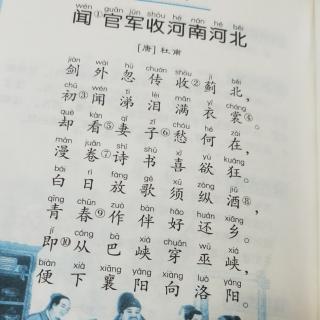 wén guān jūn shōu hé nán hé běi
闻①官军收河南河北
[唐] 杜甫
jiàn wài hū chuán shōu jì běi
剑外忽传收②蓟北,
chū wén tì lèi mǎn yī cháng
初③闻涕泪满衣裳④。
què kàn qī zǐ chóu hé zài
却看⑤妻子⑥愁何在,
màn juàn shī shū xǐ yù kuáng
漫卷⑦诗书喜欲狂。
bái rì fàng gē xū zòng jiǔ
白日放歌须纵酒⑧,
qīng chūn zuò bàn hǎo huán xiāng
青春⑨作伴好还乡。
jí cóng bā xiá chuān wū xiá
即⑩从巴峡穿巫峡,
biàn xià xiāng yáng xiàng luò yáng
便下襄阳向洛阳。